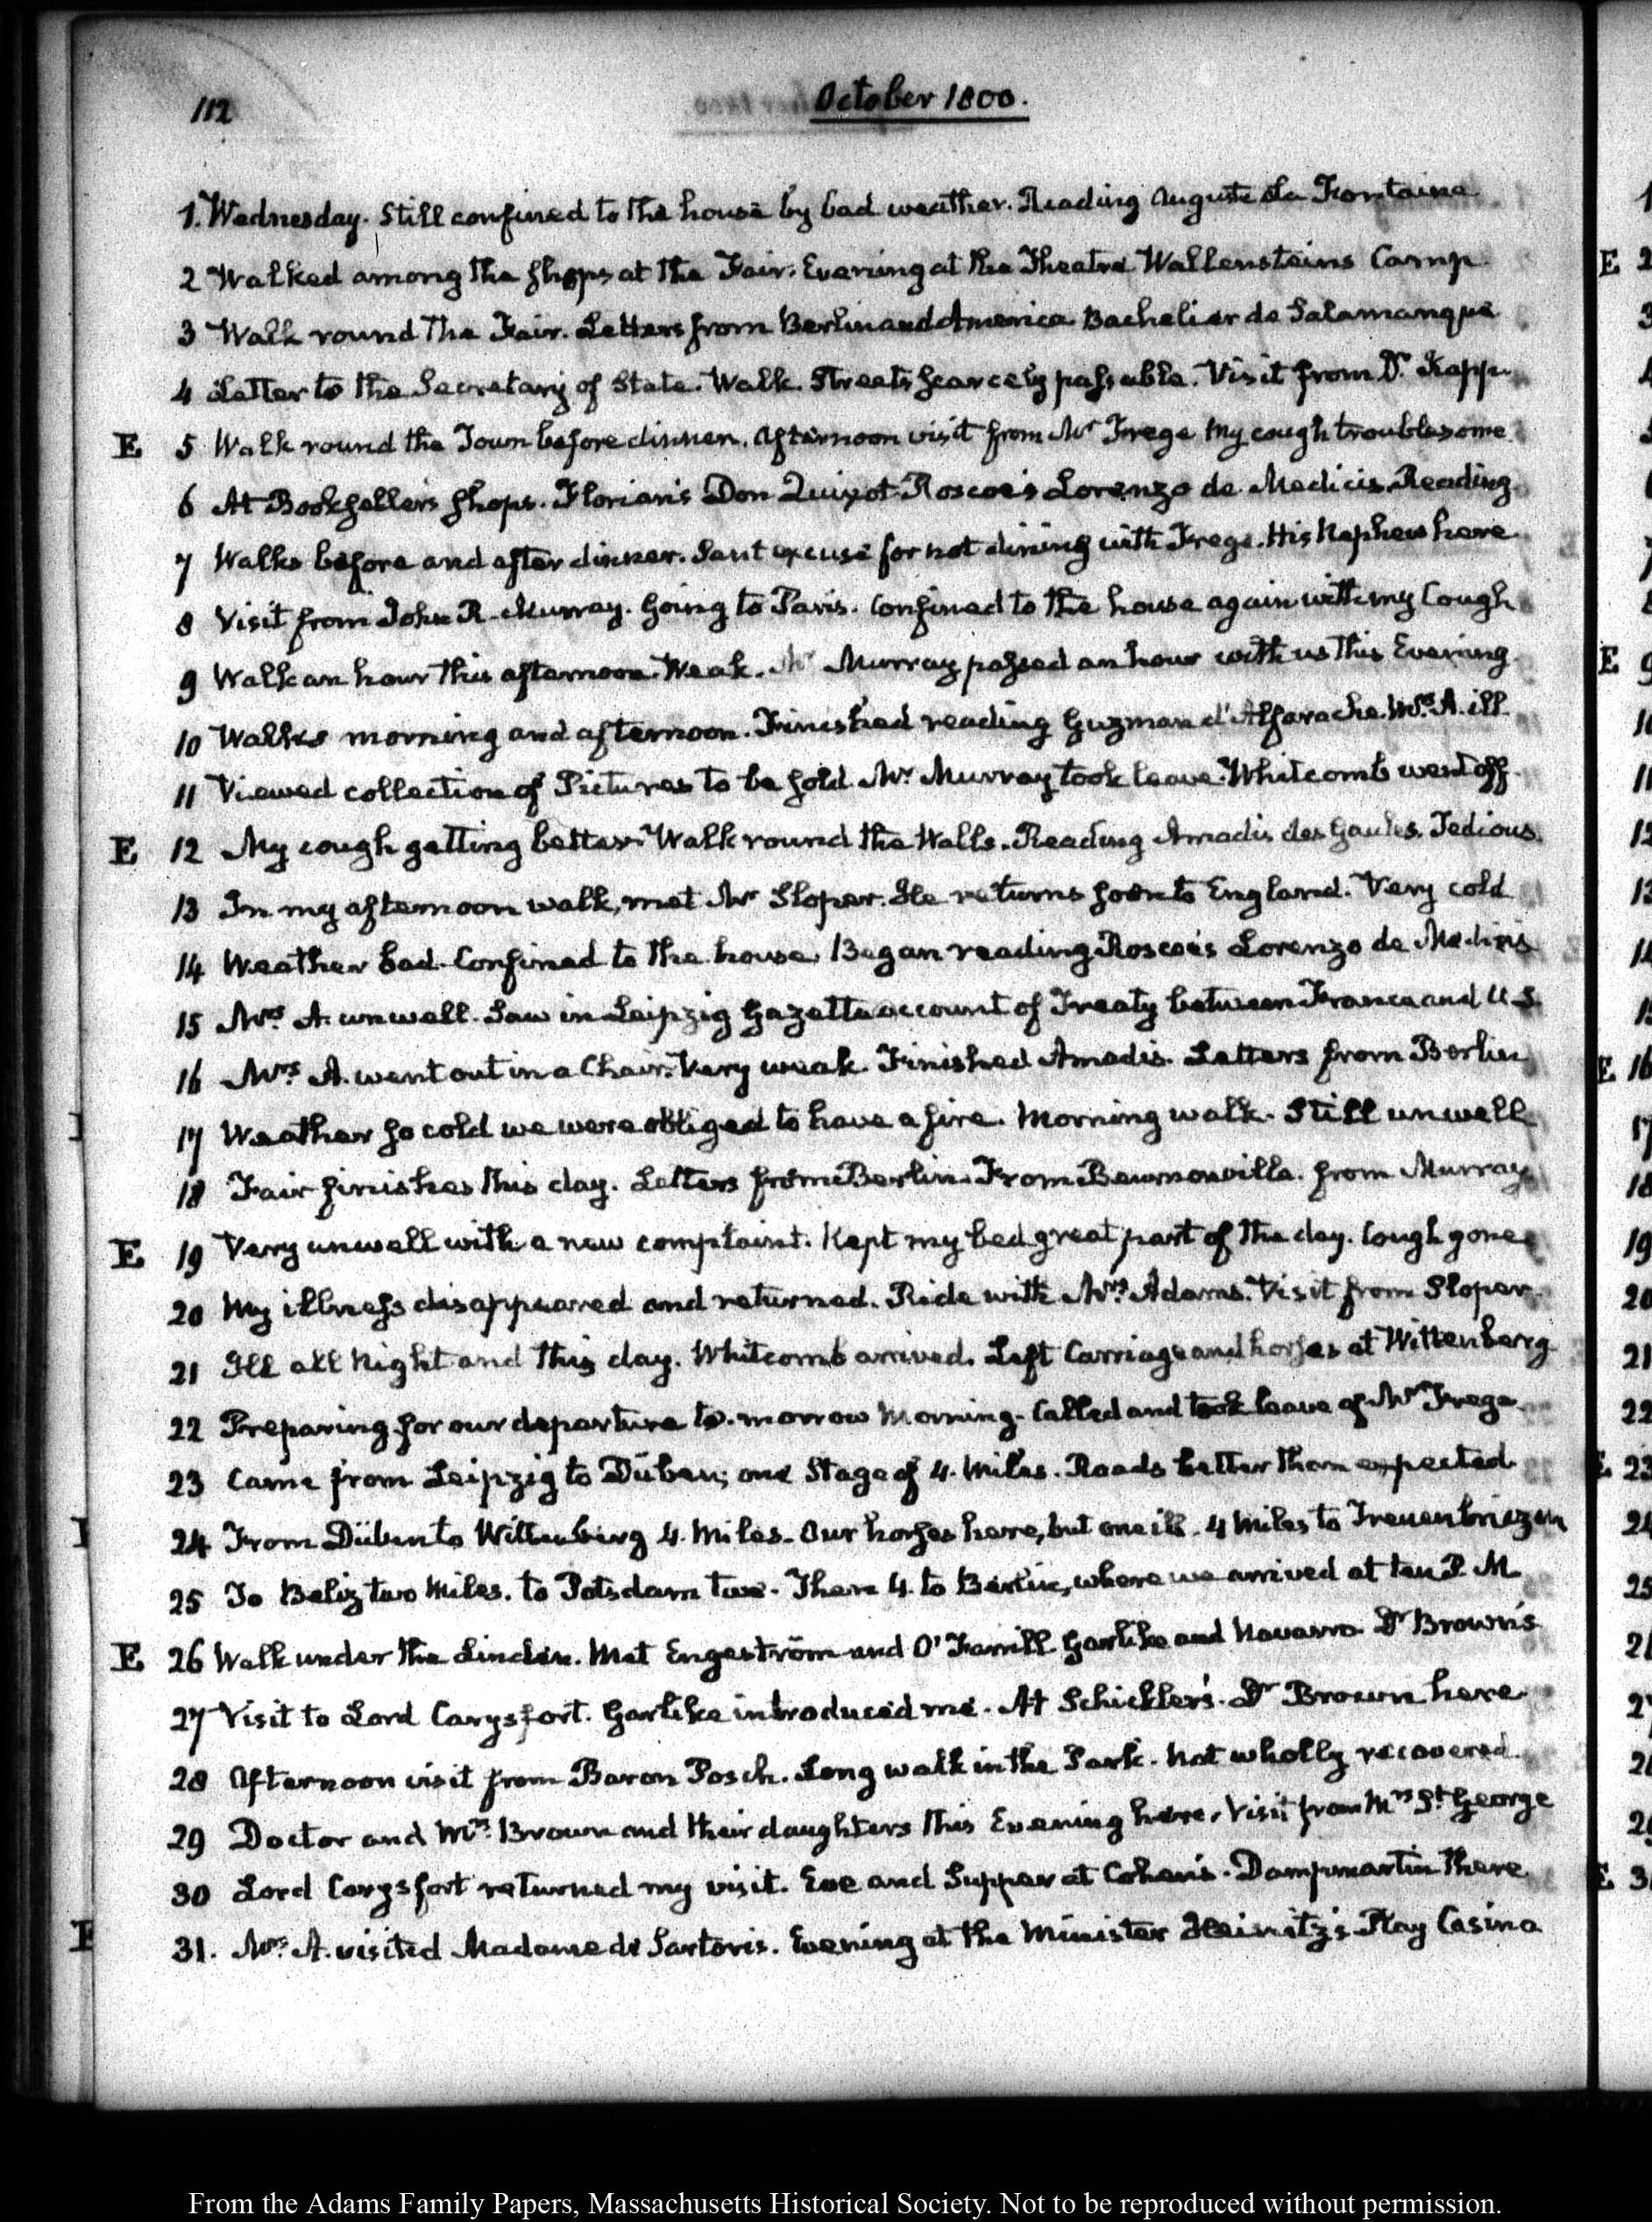 112
October 1800.
1. Wednesday. Still confined to the house by bad weather. Reading Auguste La Fontaine
2 Walked among the shops at the Fair. Evening at the Theatre Wallensteins Camp.
3 Walk round the Fair. Letters from Berlin and America. Bachelier de Salamanque
4 Letter to the Secretary of State. Walk. Streets scarcely passable. Visit from Dr. Kapp.
E 5 Walk round the Town before dinner. Afternoon visit from Mr Frege My cough troublesome
6 At Booksellers shops. Florian's Don Quixot. Roscoe's Lorenzo de Medicis. Reading.
7 Walks before and after dinner. Sent excuse for not dining with Frege. His Nephew here
8 Visit from John R. Murray. Going to Paris. Confined to the house again with my Cough
9 Walk an hour this afternoon. Weak. Mr Murray passed an hour with us this Evening
10 Walks morning and afternoon. Finished reading Guzman d'Alfarache. Mrs. A. ill
11 Viewed collection of Pictures to be sold. Mr Murray took leave. Whitcomb went off.
E 12 My cough getting better. Walk round the Walls. Reading Amadis des Gaules. Tedious.
13 In my afternoon walk, met Mr Sloper. He returns soon to England. Very cold
14 Weather bad. Confined to the house. Began reading Roscoe's Lorenzo de Medicis
15 Mrs A. unwell. Saw in Leipzig Gazette account of Treaty between France and U.S.
16 Mrs A. went out in a Chair. Very weak. Finished Amadis. Letters from Berlin
17 Weather so cold we were obliged to have a fire. Morning walk. Still unwell
18 Fair finishes this day. Letters from Berlin. From Beurnonville. from Murray
E 19 Very unwell with a new complaint. Kept my bed great part of the day. Cough gone
20 My illness disappeared and returned. Ride with Mrs Adams. Visit from Sloper.
21 Ill all Night and this day. Whitcomb arrived. Left Carriage and horses at Wittenberg
22 Preparing for our departure to-morrow morning. Called and took leave of Mr Frege
23 Came from Leipzig to Düben; one Stage of 4. Miles. Roads better than expected
24 From Düben to Wittenberg 4. Miles. Our horses here, but one ill. 4 Miles to Treuenbriezen
25 To Beliz two Miles. to Potsdam two. Then 4. to Berlin, where we arrived at ten P.M.
E 26 Walk under the Linden. Met Engeström and O'Farrill Garlike and Navarro. Dr Brown's
27 Visit to Lord Carysfort. Garlike introduced me. At Schickler's. Dr Brown here
28 Afternoon visit from Baron Posch. Long walk in the Park. Not wholly recovered.
29 Doctor and Mrs Brown and their daughters this Evening here. Visit from Mrs St. George
30 Lord Carysfort returned my visit. Eve and Supper at Cohen's. Dampmartin there
31. Mrs A. visited Madame de Sartoris. Evening at the Minister Heinitz's Play Casino
From the Adams Family Papers, Massachusetts Historical Society. Not to be reproduced without permission.